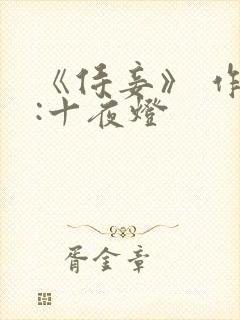 《侍妾》 作
:十夜燈
胥金章